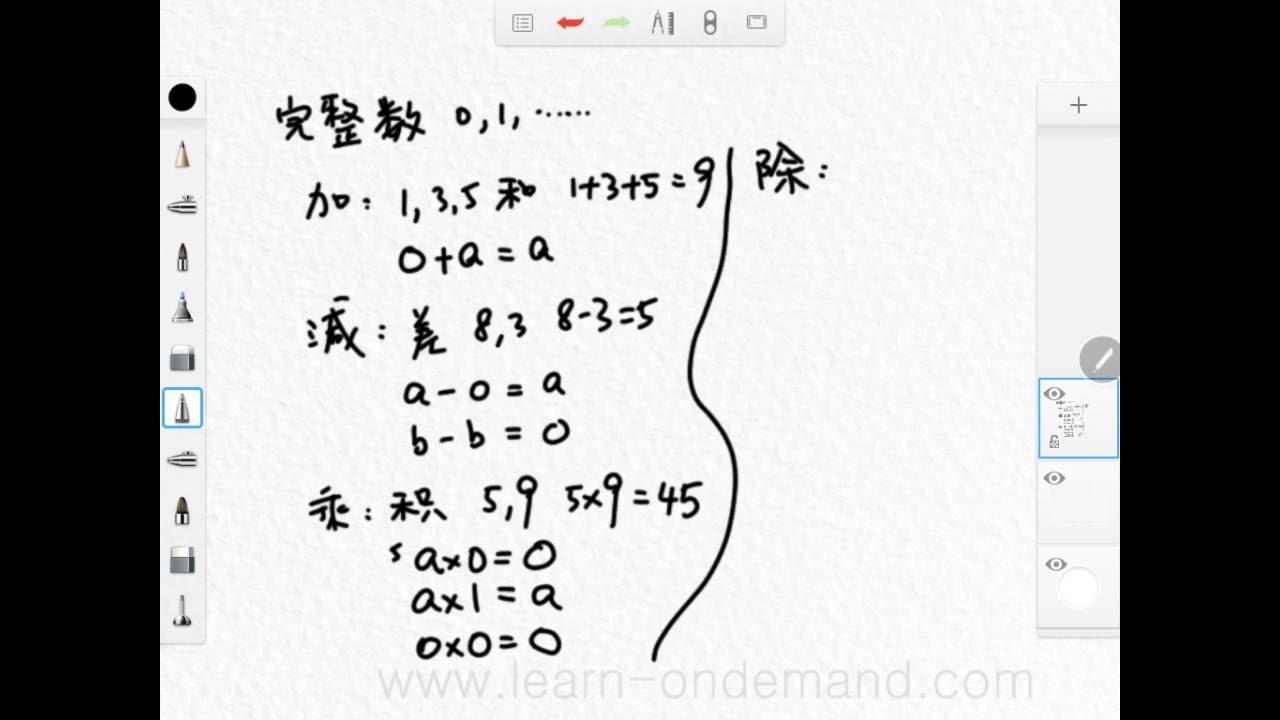 完整数 0,1,······
加: 1,3,5 和 1+3+5=9
0+a=a
减: 差 8,3 8-3=5
a-0=a
b-b=0
乘: 积 5,9 5x9=45
s ax0=0
ax1=a
0x0=0
除:
www.learn-ondemand.com